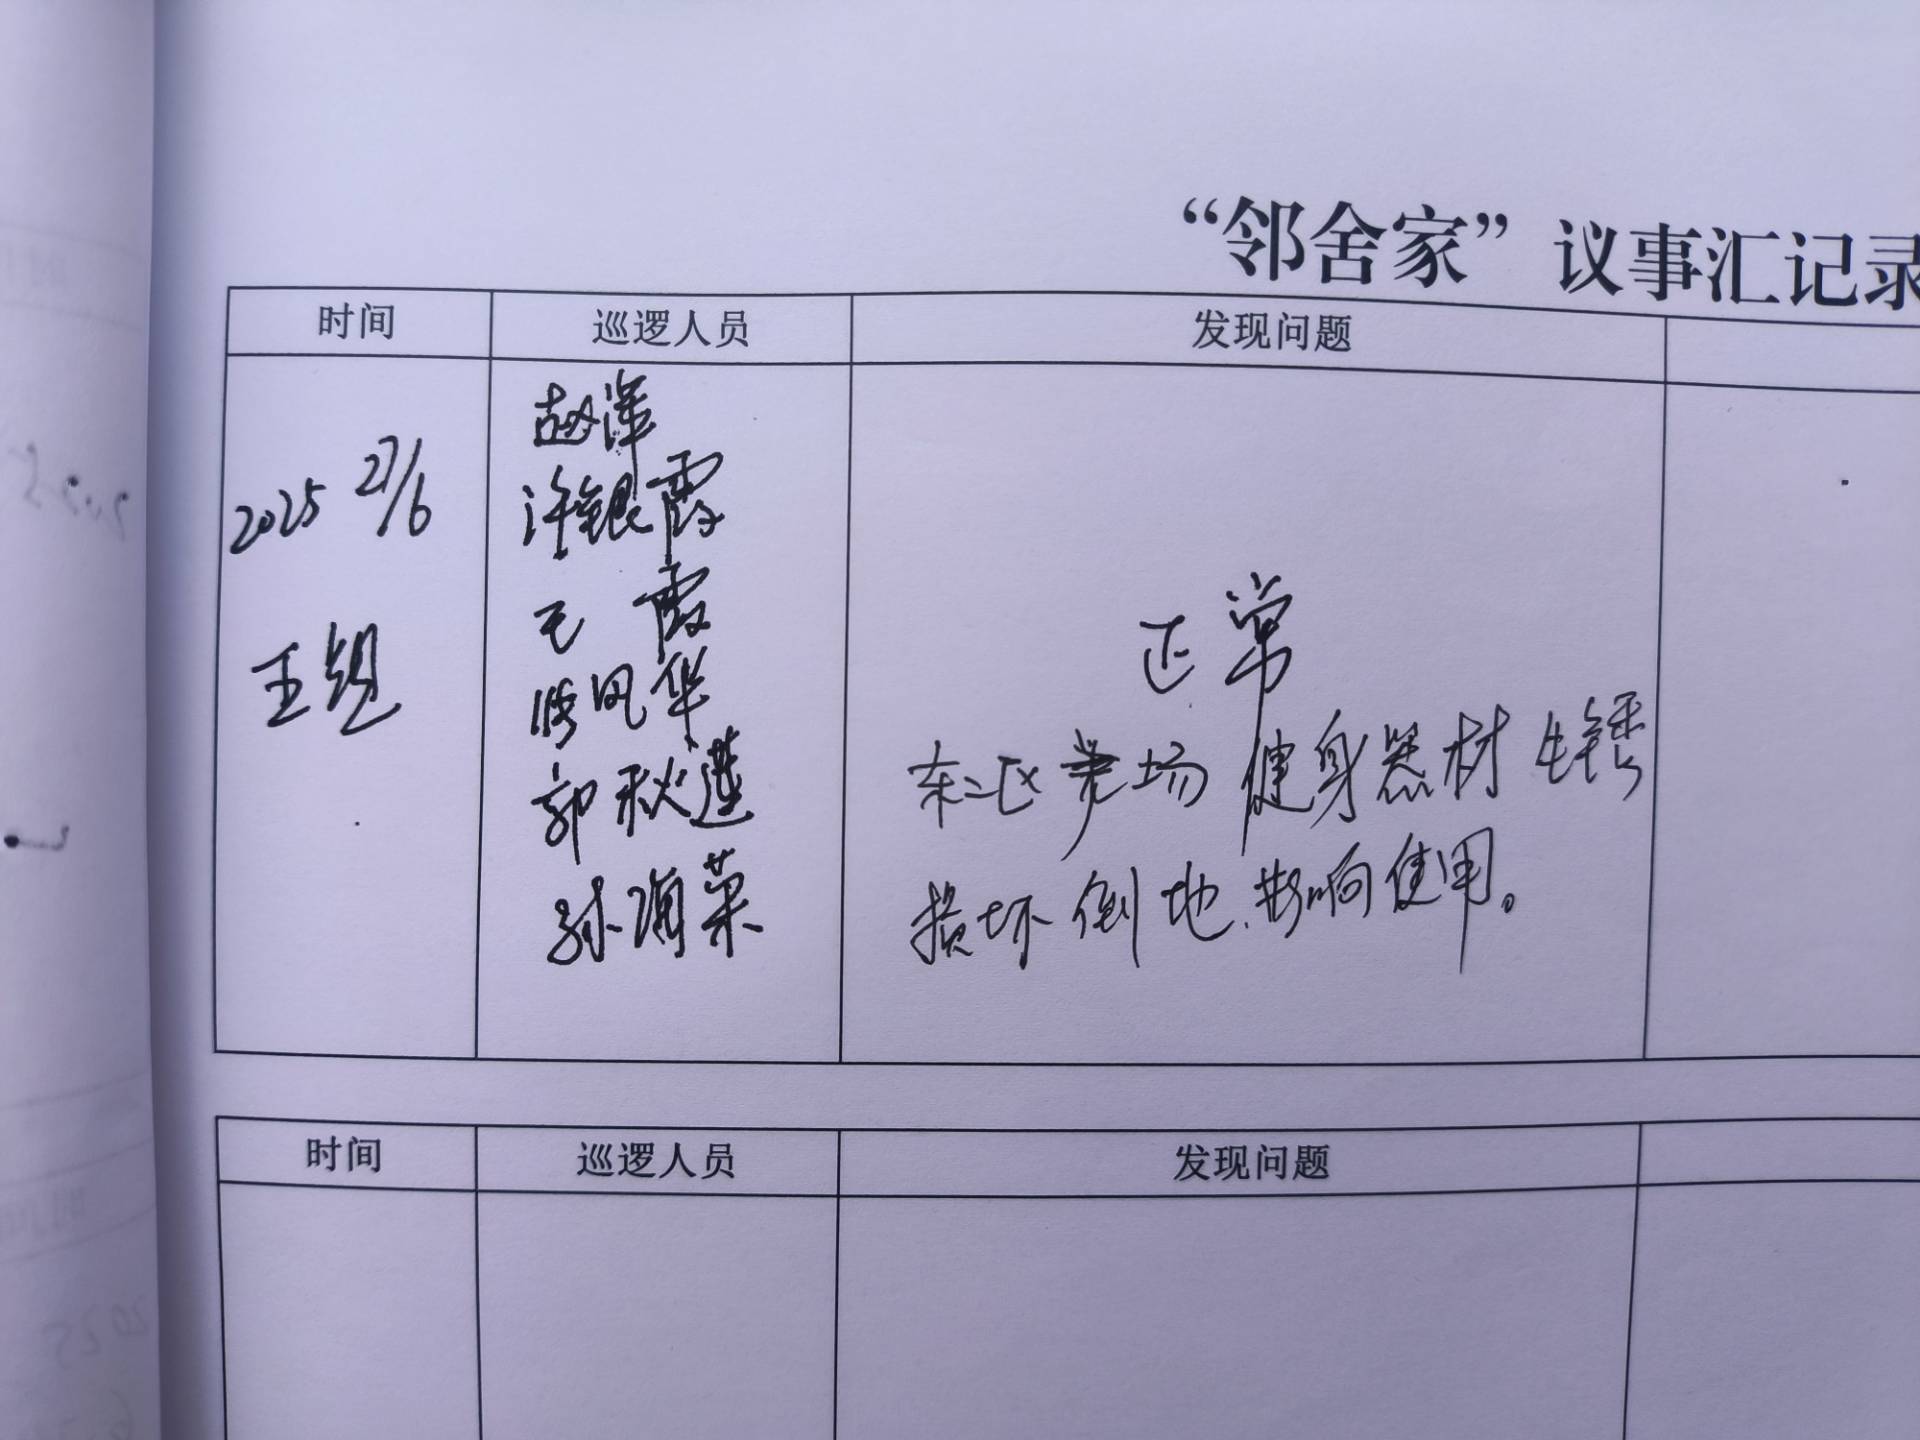 “邻舍家”议事汇记录
时间 巡逻人员 发现问题
2025 27/6
王组
赵萍
许银霞
毛霞
凤华
郭秋莲
孙菜
正常
东二区 场 健身器材生锈
损坏倒地、影响使用。
时间 巡逻人员 发现问题